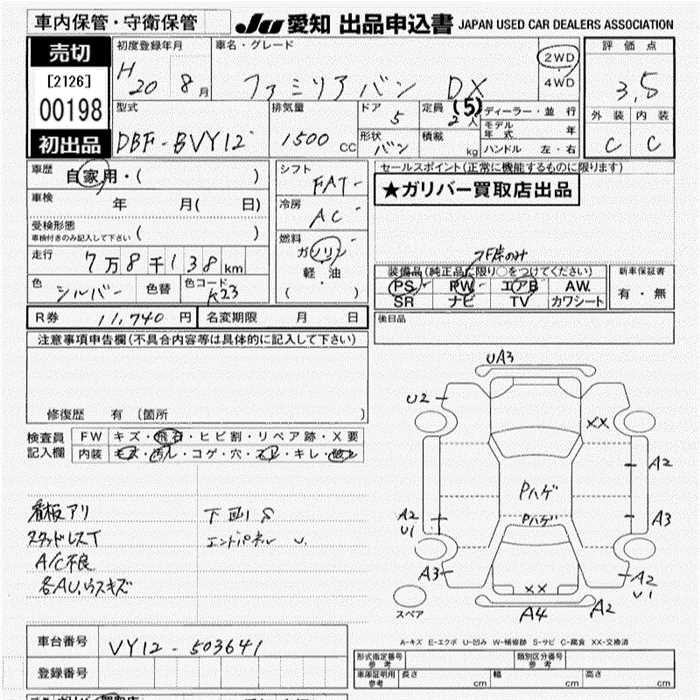 車内保管・守衛保管
JU 愛知 出品申込書 JAPAN USED CAR DEALERS ASSOCIATION
売切
[2126]
00198
初出品
初度登録年月
H 20 8月
車名・グレード
ファミリアバン DX
2WD
・
4WD
評価点
3.5
外装 内装
C C
型式
DBF-BVY12
排気量
1500 CC
ドア
5
定員
(5)
2人
形状
バン
積載
kg
ディーラー・並行
モデル年式 年
ハンドル 左・右
車歴
自家用・( )
車検
年 月( 日)
受検形態
車検付きのみ記入して下さい ( )
走行
7万8千138km
色
シルバー
色替
色コード
K23
シフト
FAT
冷房
AC
燃料
ガソリン
軽・油
( )
セールスポイント(正常に機能するものに限ります)
★ガリバー買取店出品
装備品(純正品に限り○をつけてください)
PS PW エアB AW
SR ナビ TV カワシート
新車保証書
有・無
後日品
R券 11,740円
名変期限 月 日
注意事項申告欄(不具合内容等は具体的に記入して下さい)
修復歴 有 (箇所 )
検査員
記入欄
FW キズ・飛石・ヒビ割・リペア跡・X要
内装 キズ・汚レ・コゲ・穴・スレ・キレ・
看板アリ
スタッドレスT
A/C不良
各AU,ウスキズ
下回りS
エンドパネル U.
UA3
U2
XX
A2
Pハゲ
Pハゲ
A2
U1
A3
A3
XX
A2
U1
スペア
A4
A2
A-キズ E-エクボ U-凹み W-補修跡 S-サビ C-腐食 XX-交換済
車台番号 VY12-503641
登録番号
形式指定番号
参考
類別区分番号
参考
車庫証明用
参考
長さ cm
幅 cm
高さ cm